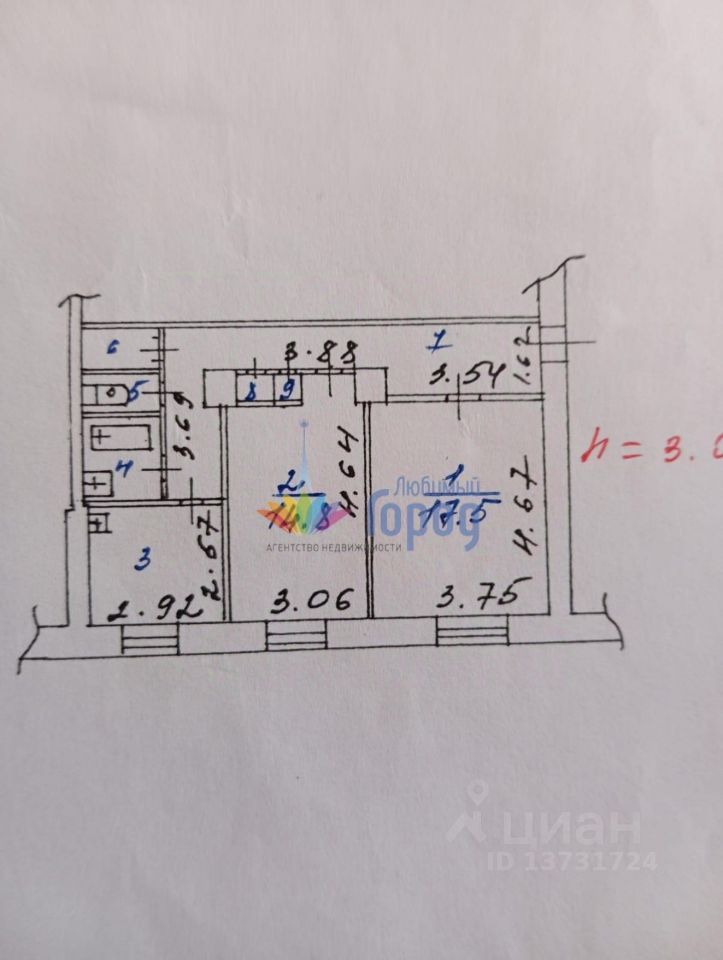 6
3.88
7
3.54
1.62
5
3.69
8
9
4
2
14.8
4.64
1
17.5
4.67
h = 3.0
Любимый
Город
АГЕНТСТВО НЕДВИЖИМОСТИ
3
2.67
2.92
3.06
3.75
циан
ID 13731724